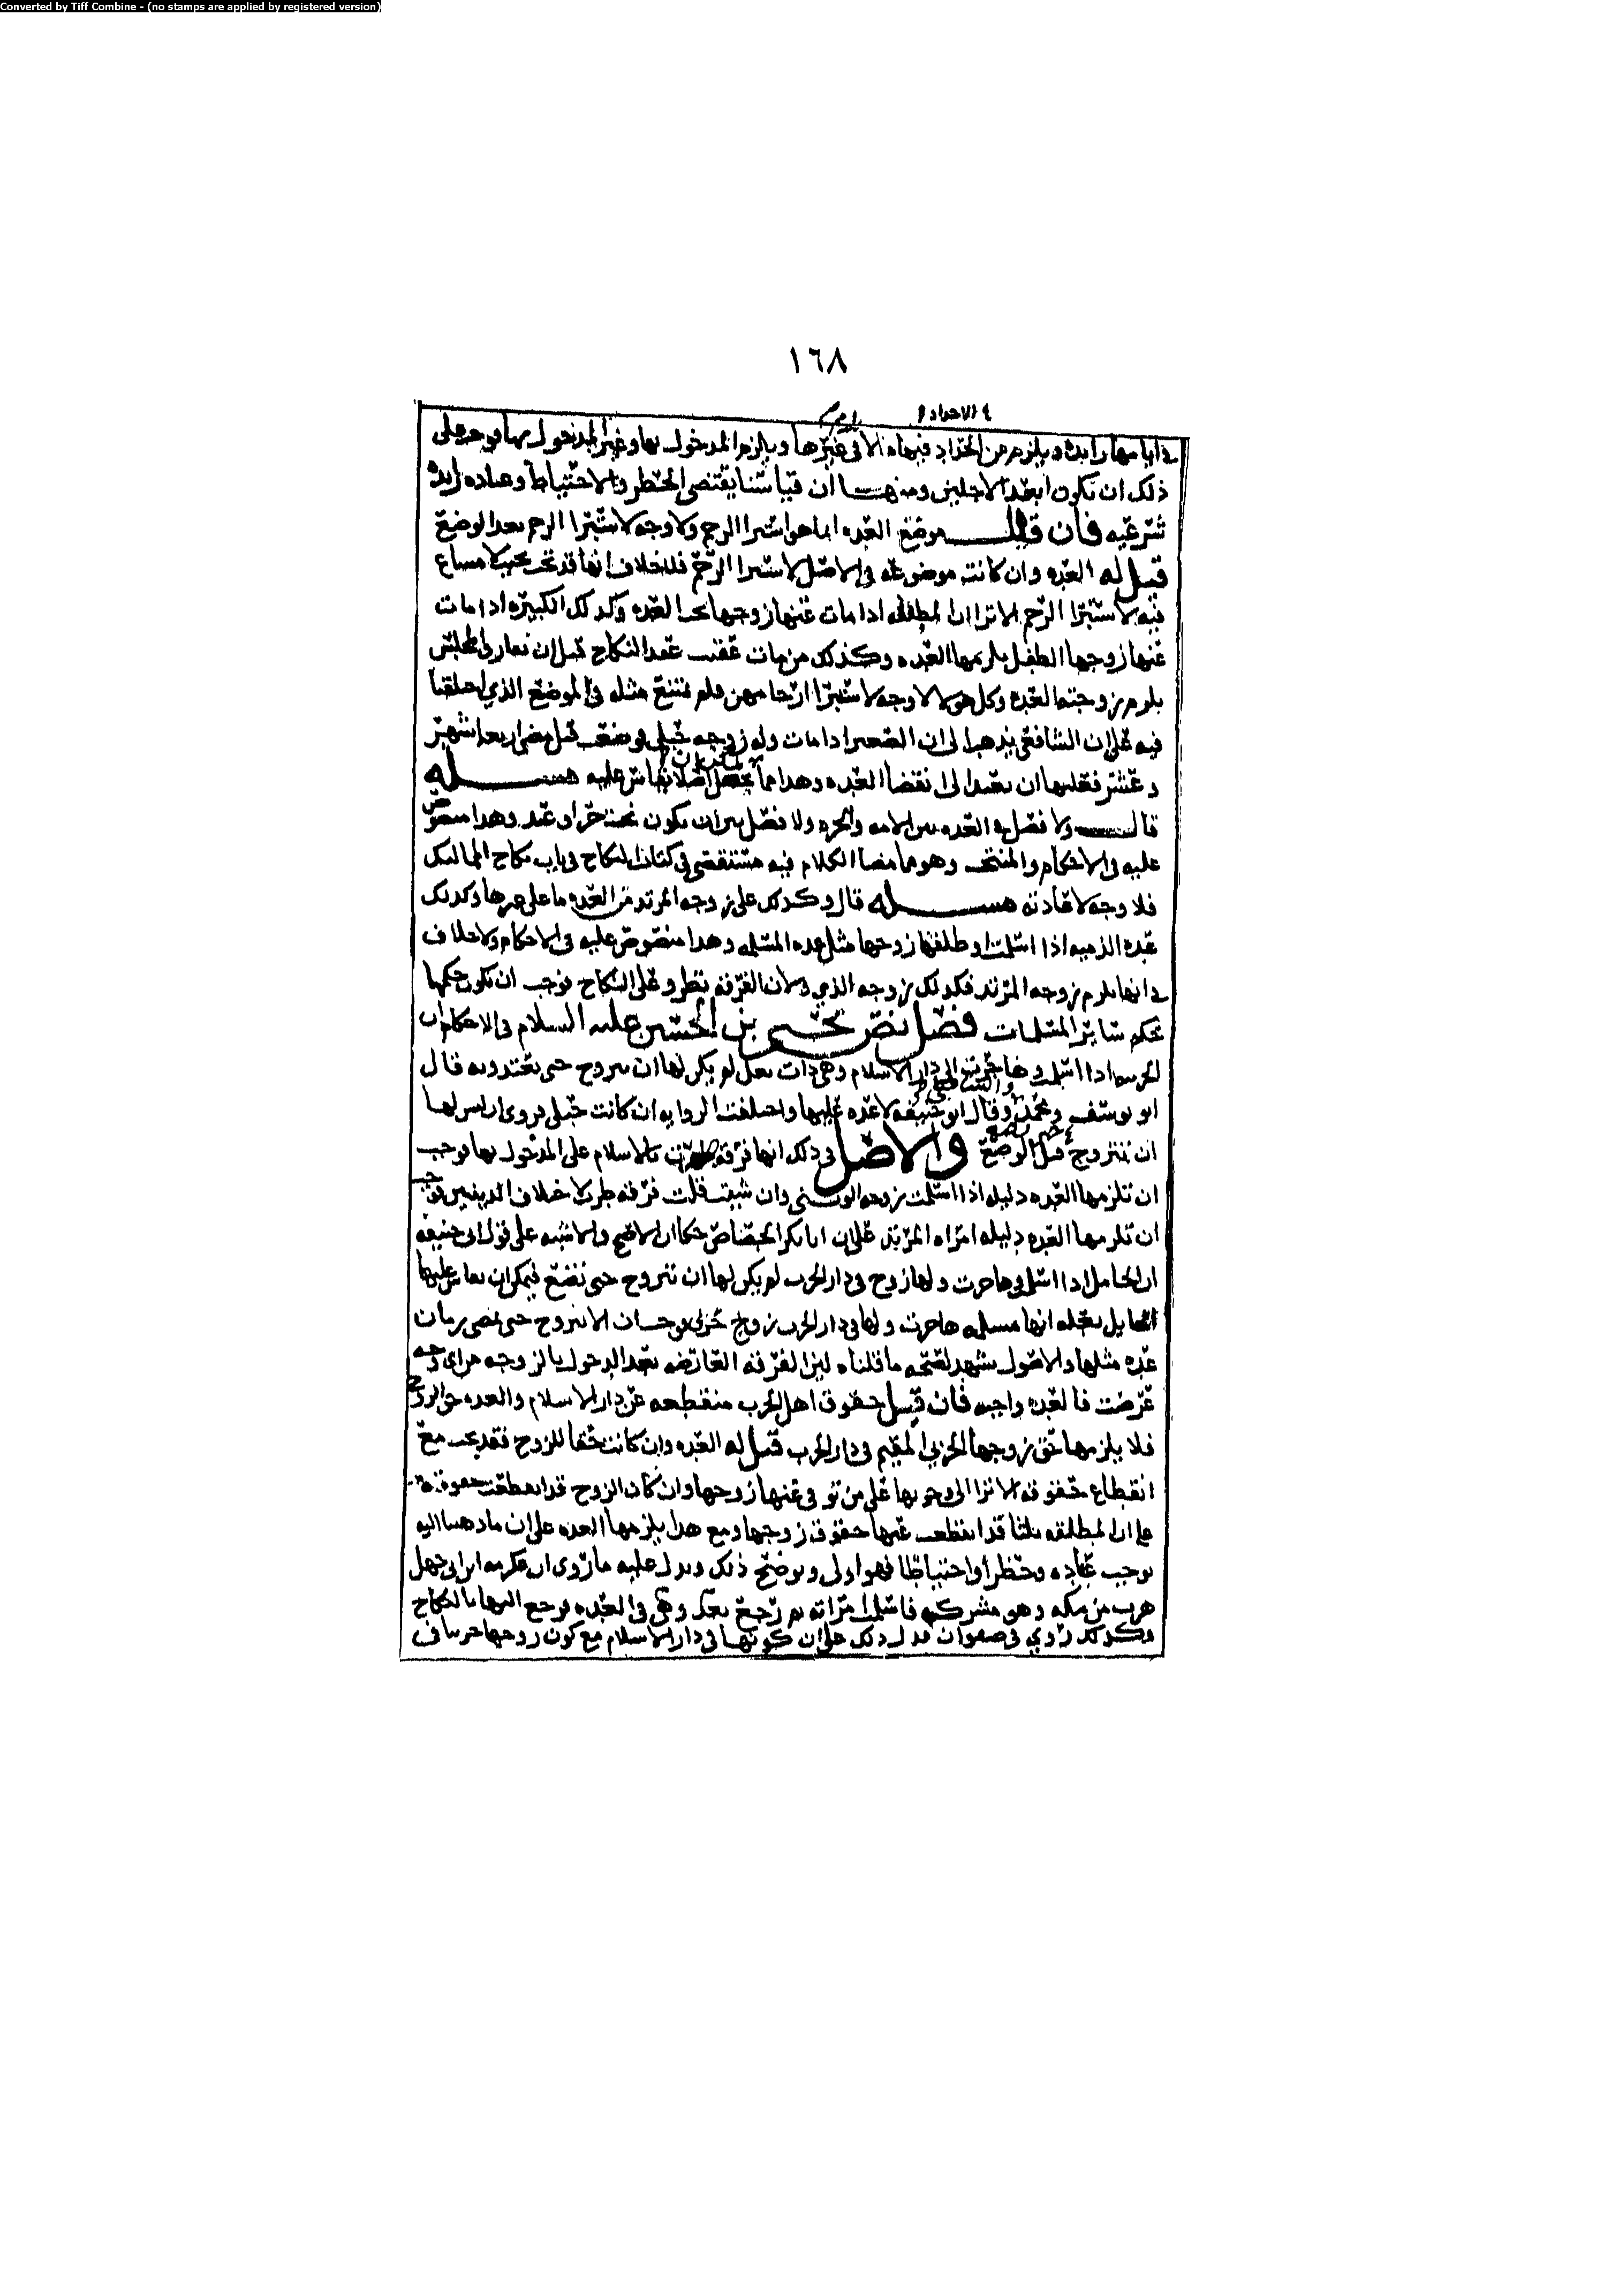 Converted by Tiff Combine - (no stamps are applied by registered version)
١٦٨
الاحداد
في ايامها زايده ويلزم من الحداد فيها ما لا في غيرها ويلزم المدخول بها وغير المدخول بها فوجب على
ذلك ان تكون ابعد الاجلين ومنها ان قياسنا يقتضي الحظر والاحتياط وعباده زايده
شرعيه فان قيل موضع العده انما هو استبرا الرحم ولا وجه لاستبرا الرحم بعد الوضع
قيل له العده وان كانت موضوعه في الاصل لاستبرا الرحم فلا خلاف انها قد تجب بحيث لا مساغ
فيه لاستبرا الرحم الا ترا ان المطلقه اذا مات عنها زوجها تجب العده وكذلك الكبيره اذا مات
عنها زوجها الطفل يلزمها العده وكذلك من مات عقيب عقد النكاح قبل ان يفارق المجلس
يلزم زوجته العده وكل هولا لا وجه لاستبرا ارحامهن فلم يمتنع مثله في الموضع الذي اختلفنا
فيه على ان الشافعي يذهب الى ان الصغير اذا مات وله زوجه حبلى فوضعت قبل مضي اربعة اشهر
وعشر فعليها ان تعتد الى انقضا العده وهذا مما يجعل اصلا يقاس عليه مسله
قال ولا فصل في العده بين الامه والحره ولا فصل بين ان يكون تحت حر او عبد وهذا منصوص
عليه في الاحكام والمنتخب وهو مما مضا الكلام فيه مستقصى في كتاب النكاح في باب نكاح المماليك
فلا وجه لاعادته مسله قال وكذلك على زوجه المرتد من العده ما على غيرها وكذلك
عده الذميه اذا اسلمت او طلقها زوجها مثل عده المسلمه وهذا منصوص عليه في الاحكام ولا خلاف
في انها تلزم زوجه المرتد فكذلك زوجه الذمي ولان الفرقه تطرو على النكاح فوجب ان يكون حكمها
حكم سائر المسلمات فصل نص يحيى بن الحسين عليه السلام في الاحكام ان
الحربيه اذا اسلمت وهاجرت الى دار الاسلام وهي ذات بعل لم يكن لها ان تتزوج حتى تعتد وبه قال
ابو يوسف ومحمد والشافعي وقال ابو حنيفه لا عده عليها واختلفت الروايه ان كانت حبلى فروى ان ليس لها
ان تتزوج قبل الوضع والاصل في ذلك انها فرقه طرت بالاسلام على المدخول بها فوجب
ان تلزمها العده دليله اذا اسلمت زوجه الوثني وان شيت قلت فرقه طرت لاختلاف الدينين فوجب
ان تلزمها العده دليله امراه المرتد على ان ابا بكر الجصاص حكا ان الاصح والاشبه على قول ابي حنيفه
ان الحامل اذا اسلمت وهاجرت ولها زوج في دار الحرب لم يكن لها ان تتزوج حتى تضع فيمكن ان يقاس عليها
الحايل بعله انها مسلمه هاجرت ولها في دار الحرب زوج حربي فوجب ان لا تتزوج حتى تمضي زمان
عده مثلها والاصول تشهد لصحه ما قلناه لان الفرقه العارضه بعد الدخول بالزوجه من اي وجه
عرضت فالعده واجبه فان قيل حقوق اهل الحرب منقطعه عن دار الاسلام والعده حق الزوج
فلا يلزمها حق زوجها الحربي المقيم في دار الحرب قيل له العده وان كانت حقا للزوج فقد تجب مع
انقطاع حقوقه الا ترا الى وجوبها على من توفي عنها زوجها وان كان الزوج قد انقطعت حقوقه
على ان المطلقه ثلثا قد انقطعت عنها حقوق زوجها ومع هذا يلزمها العده على ان ما ذهبنا اليه
يوجب عباده وحظرا واحتياطا فهو اولى ويوضح ذلك ويدل عليه ما روى ان عكرمه ابن ابي جهل
هرب من مكه وهو مشرك فاسلمت مراته ثم رجع بعد وهي في العده فرجع اليها بالنكاح
وكذلك روي في صفوان فدل ذلك على ان كونها في دار الاسلام مع كون زوجها حربيا في